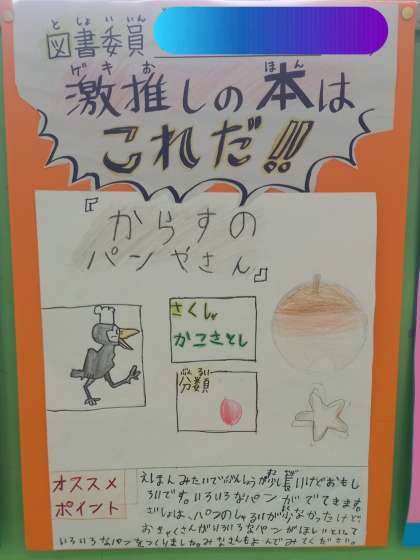 図書委員
としょいいん
激推しの本は
ゲキお ほん
これだ!!
『からすの
パンやさん』
さくしゃ
かこさとし
ぶんるい
分類
オススメ
ポイント
えほんみたいでぶんしょうが少し長いけどおもし
ろいです。いろいろなパンがでてきます。
さいしょは、パンのしゅるいが少なかったけど、
おきゃくさんがいろいろなパンがほしいといって
いろいろなパンをつくりました。みなさんもよんでみてください。